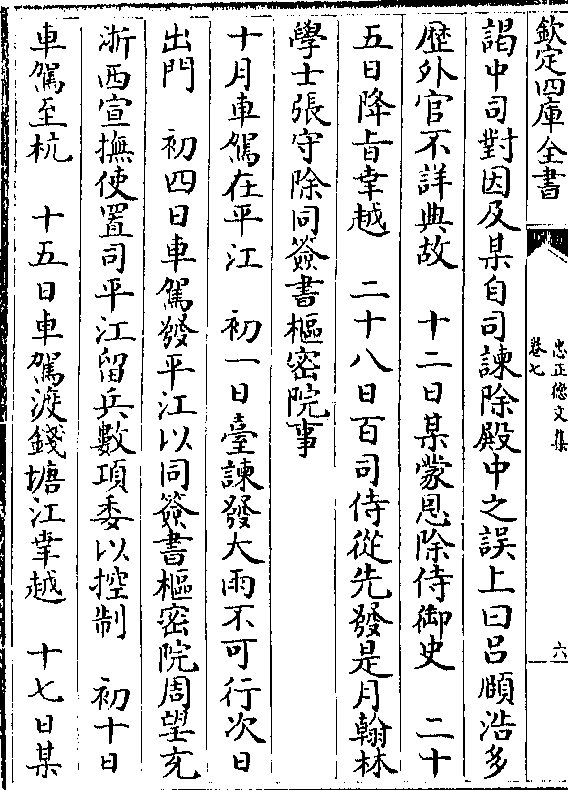 欽定四庫全書
忠正德文集
卷七
六
謁中司對因及某自司諫除殿中之誤上曰吕頤浩多
歴外官不詳典故　十二日某蒙恩除侍御史　二十
五日降㫖幸越　二十八日百司侍從先發是月翰林
學士張守除同簽書樞密院事
十月車駕在平江　初一日臺諫發大雨不可行次日
出門　初四日車駕發平江以同簽書樞密院周望充
浙西宣撫使置司平江留兵數項委以控制　初十日
車駕至杭　十五日車駕渡錢塘江幸越　十七日某